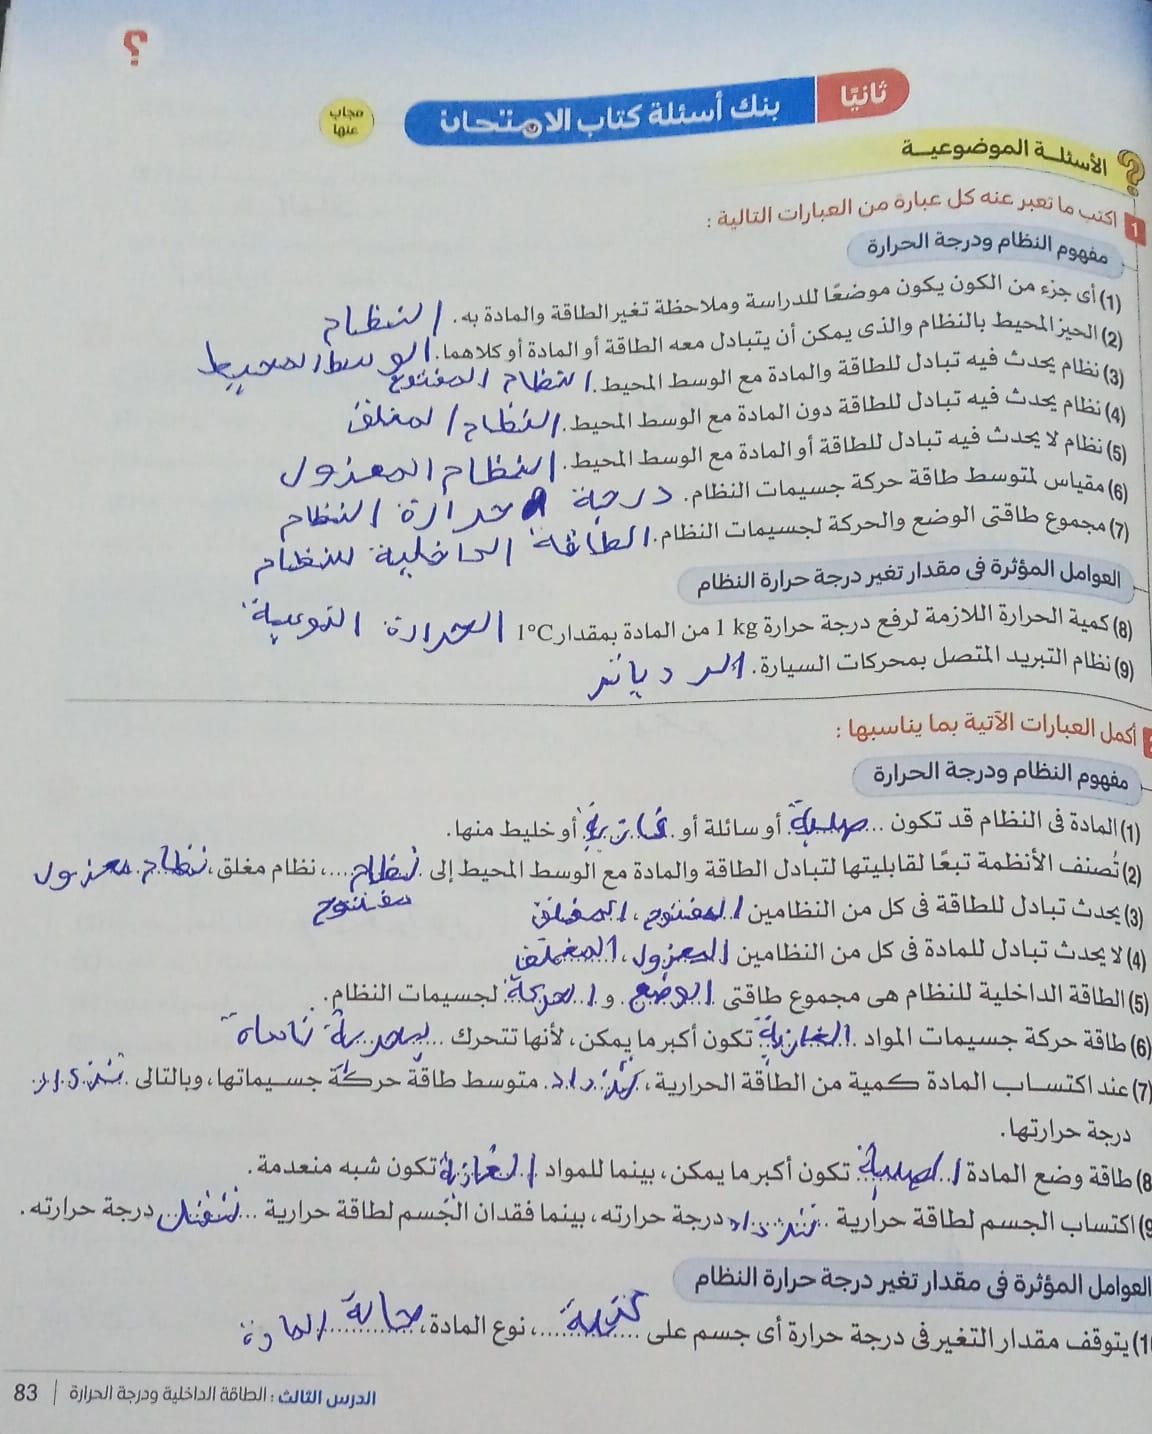 ؟
ثانيًا
بنك أسئلة كتاب الامتحان
مجاب عنها
الأسئلـة الموضوعيـة
1 اكتب ما تعبر عنه كل عبارة من العبارات التالية :
مفهوم النظام ودرجة الحرارة
(1) أى جزء من الكون يكون موضعًا للدراسة وملاحظة تغير الطاقة والمادة به. النظام
(2) الحيز المحيط بالنظام والذى يمكن أن يتبادل معه الطاقة أو المادة أو كلاهما. الوسط المحيط
(3) نظام يحدث فيه تبادل للطاقة والمادة مع الوسط المحيط. النظام المفتوح
(4) نظام يحدث فيه تبادل للطاقة دون المادة مع الوسط المحيط. النظام المغلق
(5) نظام لا يحدث فيه تبادل للطاقة أو المادة مع الوسط المحيط. النظام المعزول
(6) مقياس لمتوسط طاقة حركة جسيمات النظام. درجة حرارة النظام
(7) مجموع طاقتى الوضع والحركة لجسيمات النظام. الطاقة الداخلية للنظام
العوامل المؤثرة فى مقدار تغير درجة حرارة النظام
(8) كمية الحرارة اللازمة لرفع درجة حرارة 1 kg من المادة بمقدار 1°C الحرارة النوعية
(9) نظام التبريد المتصل بمحركات السيارة. الردياتر
أكمل العبارات الآتية بما يناسبها :
مفهوم النظام ودرجة الحرارة
(1) المادة فى النظام قد تكون ... صلبة أو سائلة أو غازية أو خليط منها.
(2) تُصنف الأنظمة تبعًا لقابليتها لتبادل الطاقة والمادة مع الوسط المحيط إلى نظام ....، نظام مغلق، نظام معزول
مفتوح
(3) يحدث تبادل للطاقة فى كل من النظامين المفتوح، المغلق
(4) لا يحدث تبادل للمادة فى كل من النظامين المعزول، المغلق
(5) الطاقة الداخلية للنظام هى مجموع طاقتى الوضع و الحركة لجسيمات النظام.
(6) طاقة حركة جسيمات المواد الغازية تكون أكبر ما يمكن، لأنها تتحرك ... بحرية تامة
(7) عند اكتساب المادة كمية من الطاقة الحرارية، تزداد متوسط طاقة حركة جسيماتها، وبالتالى تزداد
درجة حرارتها.
(8) طاقة وضع المادة الصلبة تكون أكبر ما يمكن، بينما للمواد الغازية تكون شبه منعدمة.
(9) اكتساب الجسم لطاقة حرارية ... تزداد درجة حرارته، بينما فقدان الجسم لطاقة حرارية ... درجة حرارته.
العوامل المؤثرة فى مقدار تغير درجة حرارة النظام
(1) يتوقف مقدار التغير فى درجة حرارة أى جسم على كتلة ...، نوع المادة، حالة المادة
الدرس الثالث : الطاقة الداخلية ودرجة الحرارة | 83